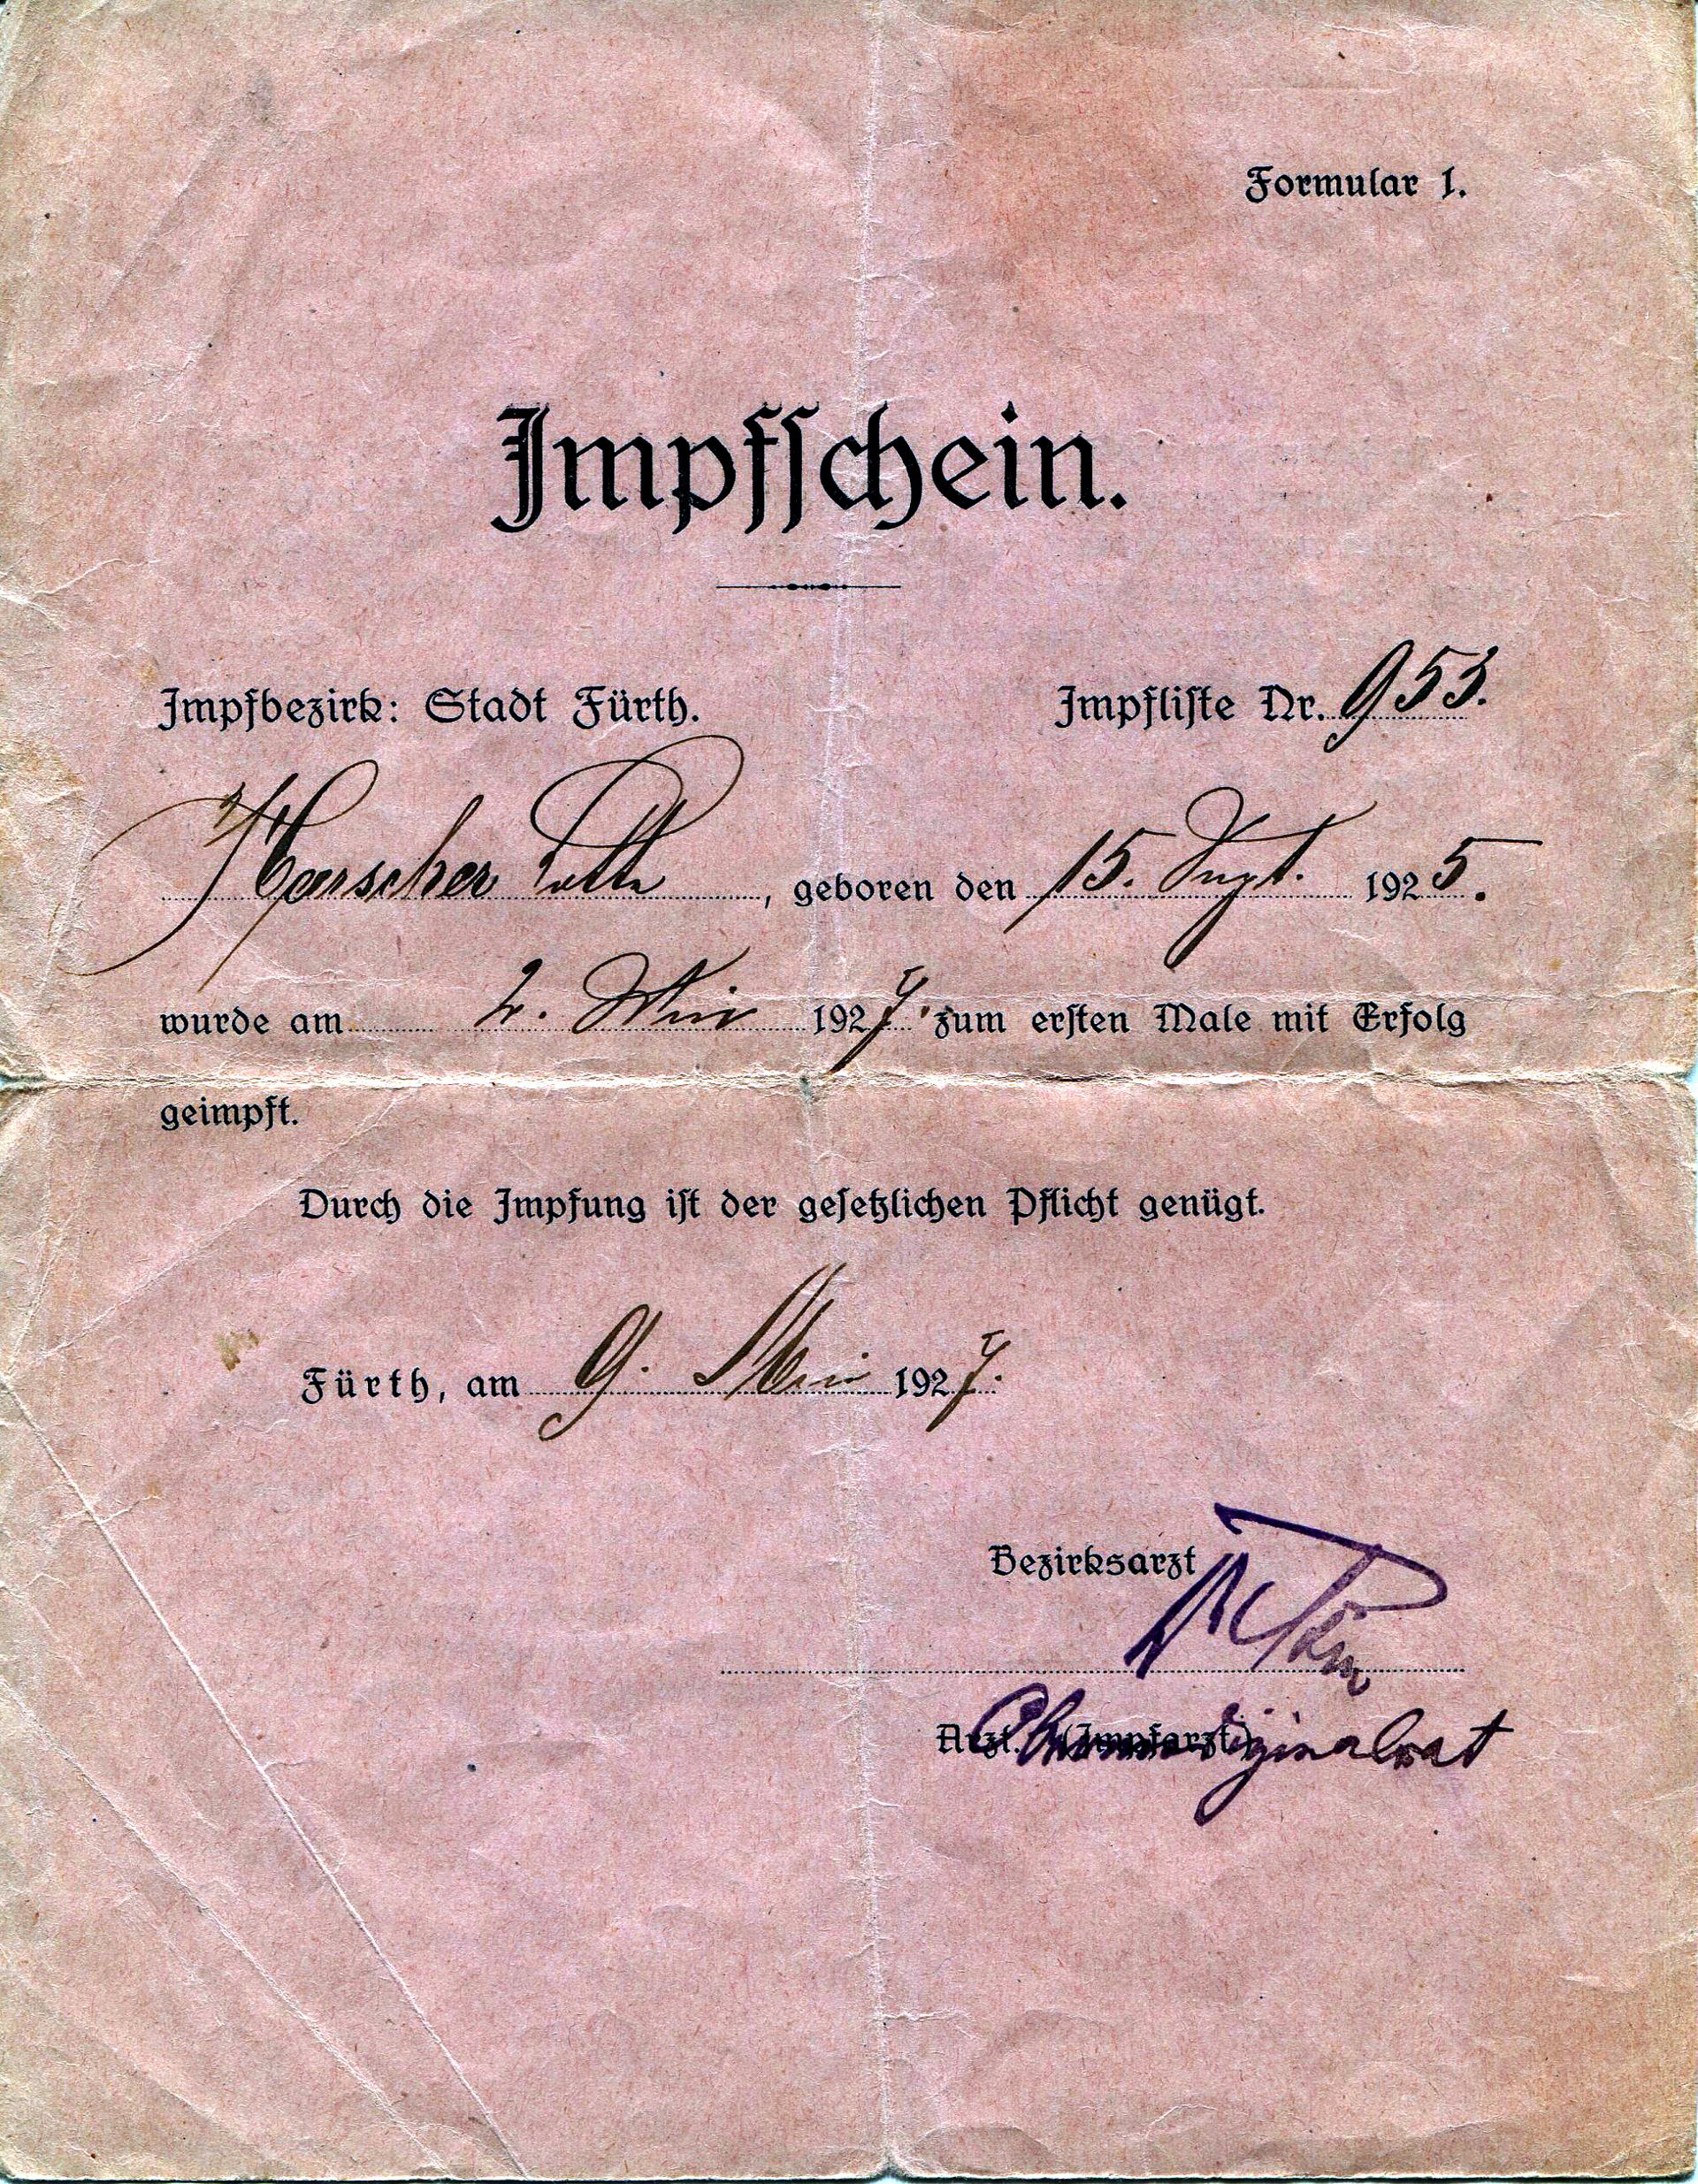 Formular 1.
Impfschein.
Impfbezirk: Stadt Fürth. Impfliste Nr. 953.
geboren den 15. Sept. 1925.
wurde am 2. Mai 1927. zum ersten Male mit Erfolg
geimpft.
Durch die Impfung ist der gesetzlichen Pflicht genügt.
Fürth, am 9. Mai 1927.
Bezirksarzt
Arzt. (Impfarzt.)